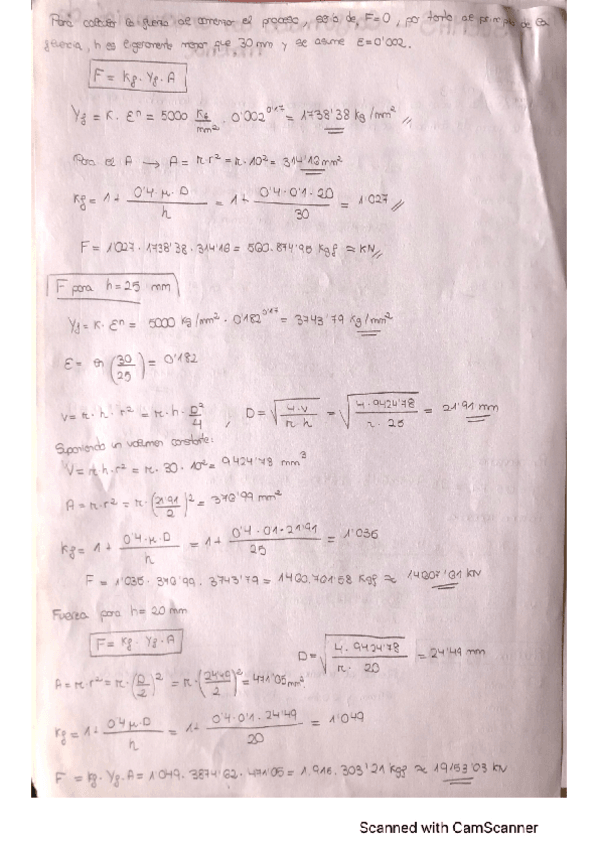 Para calcular la fuerza al comenzar el proceso, esto es, F=0, por tanto al principio de la
fuerza, h es ligeramente menor que 30 mm y se asume ε=0'002.
F = Kf · Yf · A
Yf = K · εⁿ = 5000 Kg/mm² · 0'002^0'17 = 1738'38 kg/mm²
Para el A → A = π·r² = π·10² = 314'13 mm²
Kf = 1 + 0'4·μ·D / h = 1 + 0'4·0'1·20 / 30 = 1'027
F = 1'027 · 1738'38 · 314'16 = 560.874'95 Kgf ≈ KN
F para h = 25 mm
Yf = K · εⁿ = 5000 kg/mm² · 0'182^0'17 = 3743'79 Kg/mm²
ε = ln (30/25) = 0'182
V = π · h · r² = π · h · D²/4 , D = √(4·V / π h) = √(4·9424'78 / π · 25) = 21'91 mm
Suponiendo un volumen constante:
V = π·h·r² = π · 30 · 10² = 9424'78 mm³
A = π·r² = π·(21'91/2)² = 376'99 mm²
Kf = 1 + 0'4·μ·D / h = 1 + 0'4 · 0'1 · 21'91 / 25 = 1'035
F = 1'035 · 376'99 · 3743'79 = 1460.761'58 Kgf ≈ 14607'61 kN
Fuerza para h = 20 mm
F = Kf · Yf · A
D = √(4·9424'78 / π · 20) = 24'49 mm
A = π·r² = π·(D/2)² = π·(24'49/2)² = 471'05 mm²
Kf = 1 + 0'4·μ·D / h = 1 + 0'4·0'1·24'49 / 20 = 1'049
F = kf · Yf · A = 1'049 · 3874'62 · 471'05 = 1.916.303'21 Kgf ≈ 19153'03 kN
Scanned with CamScanner